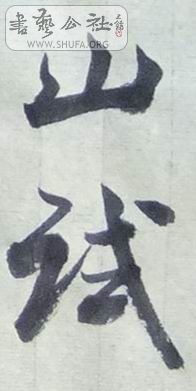 書藝公社
WWW.SHUFA.ORG
山試